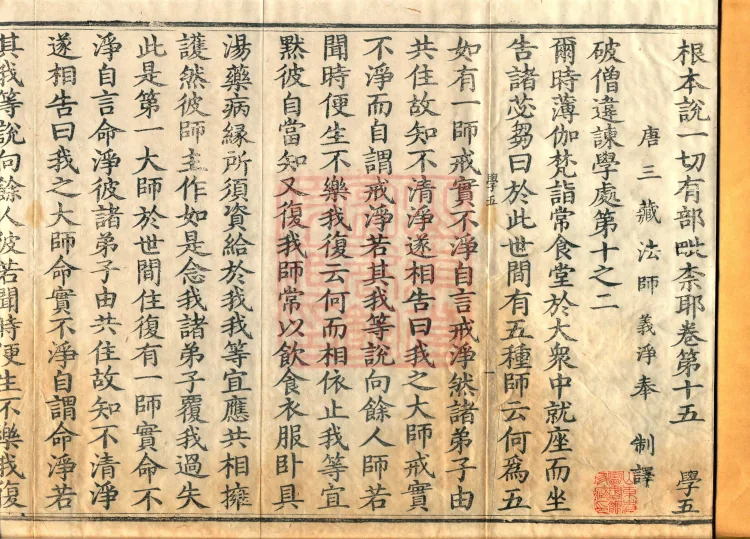 根本說一切有部毗柰耶卷第十五 學五
唐三藏法師義淨奉 制譯
破僧違諫學處第十之二
爾時薄伽梵詣常食堂於大衆中就座而坐
告諸苾芻曰於此世間有五種師云何為五
學五
一
如有一師戒實不淨自言戒淨然諸弟子由
共住故知不清淨遂相告曰我之大師戒實
不淨而自謂戒淨若其我等說向餘人師若
聞時便生不樂我復云何而相依止我等宜
黙彼自當知又復我師常以飲食衣服卧具
湯藥病緣所須資給於我我等宜應共相擁
護然彼師主作如是念我諸弟子覆我過失
此是第一大師於世間住復有一師實命不
淨自言命淨彼諸弟子由共住故知不清淨
遂相告曰我之大師命實不淨自謂命淨若
其我等說向餘人彼若聞時便生不樂我復